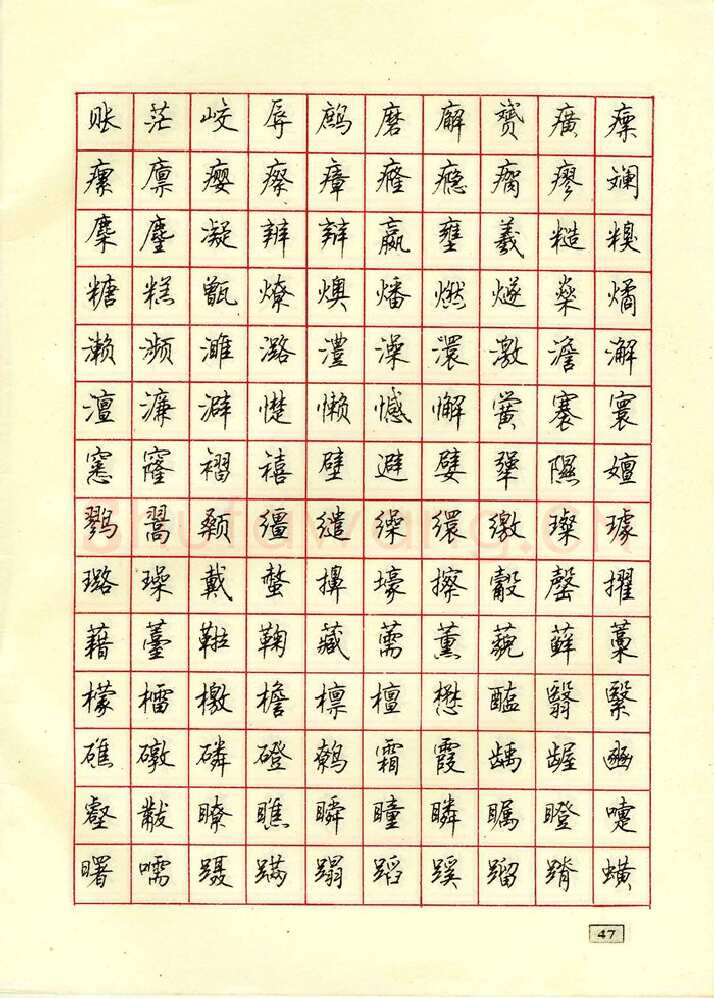 账 茫 峧 辱 鹧 磨 廨 赟 癀 瘭
瘰 廪 瘿 瘵 瘴 癃 瘾 瘸 瘳 斓
麇 麈 凝 辨 辩 嬴 壅 羲 糙 糗
糖 糕 甑 燎 燠 燔 燃 燧 燊 燏
濑 濒 濉 潞 澧 澡 澴 激 澹 澥
澶 濂 澼 憷 懒 憾 懈 黉 褰 寰
窸 窿 褶 禧 壁 避 嬖 犟 隰 嬗
鹨 翯 颡 缰 缱 缲 缳 缴 璨 璩
璐 璪 戴 螫 擤 壕 擦 觳 罄 擢
藉 薹 鞡 鞠 藏 薷 薰 藐 藓 藁
檬 檑 檄 檐 檩 檀 懋 醢 翳 繄
礁 礅 磷 磴 鹩 霜 霞 龋 龌 豳
壑 黻 瞭 瞧 瞬 瞳 瞵 瞩 瞪 嚏
曙 嚅 蹑 蹒 蹋 蹈 蹊 蹓 蹐 蟥
47
shufawang.cn